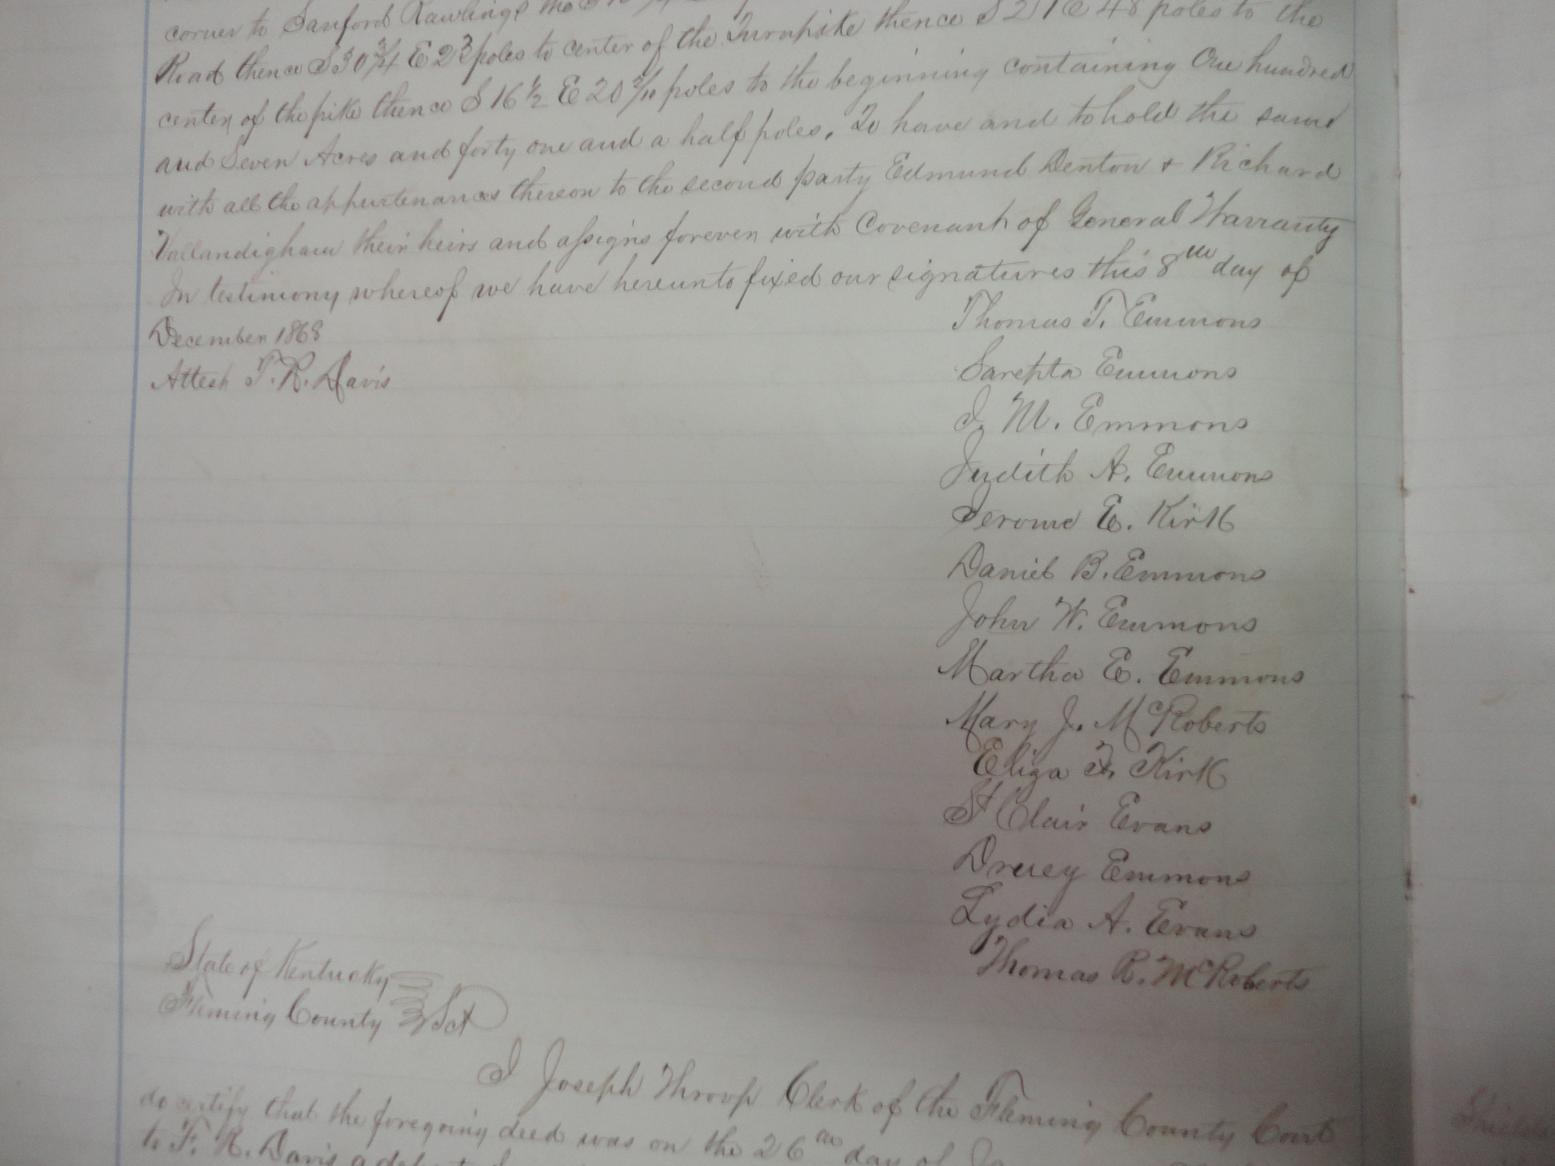 corner to Sanford Rawlings
Road thence S 30 3/4 E 23 poles to center of the Turnpike thence S 21 E 48 poles to the
center of the pike thence S 16 1/2 E 20 poles to the beginning containing One hundred
and Seven Acres and forty one and a half poles, To have and to hold the same
with all the appurtenances thereon to the second party Edmund Denton + Richard
Vallandigham their heirs and assigns forever with Covenant of General Warranty
In testimony whereof we have hereunto fixed our signatures this 8th day of
December 1868
Thomas T. Emmons
Attest T. R. Davis
Sarepta Emmons
J. M. Emmons
Judith A. Emmons
Jerome E. Kirk
Daniel B. Emmons
John W. Emmons
Martha E. Emmons
Mary J. McRoberts
Eliza F. Kirk
St Clair Evans
Drucy Emmons
Lydia A. Evans
Thomas R. McRoberts
State of Kentucky
Fleming County Sct
I Joseph Throop Clerk of the Fleming County Court
do certify that the foregoing deed was on the 26th day of
to F. R. Davis a